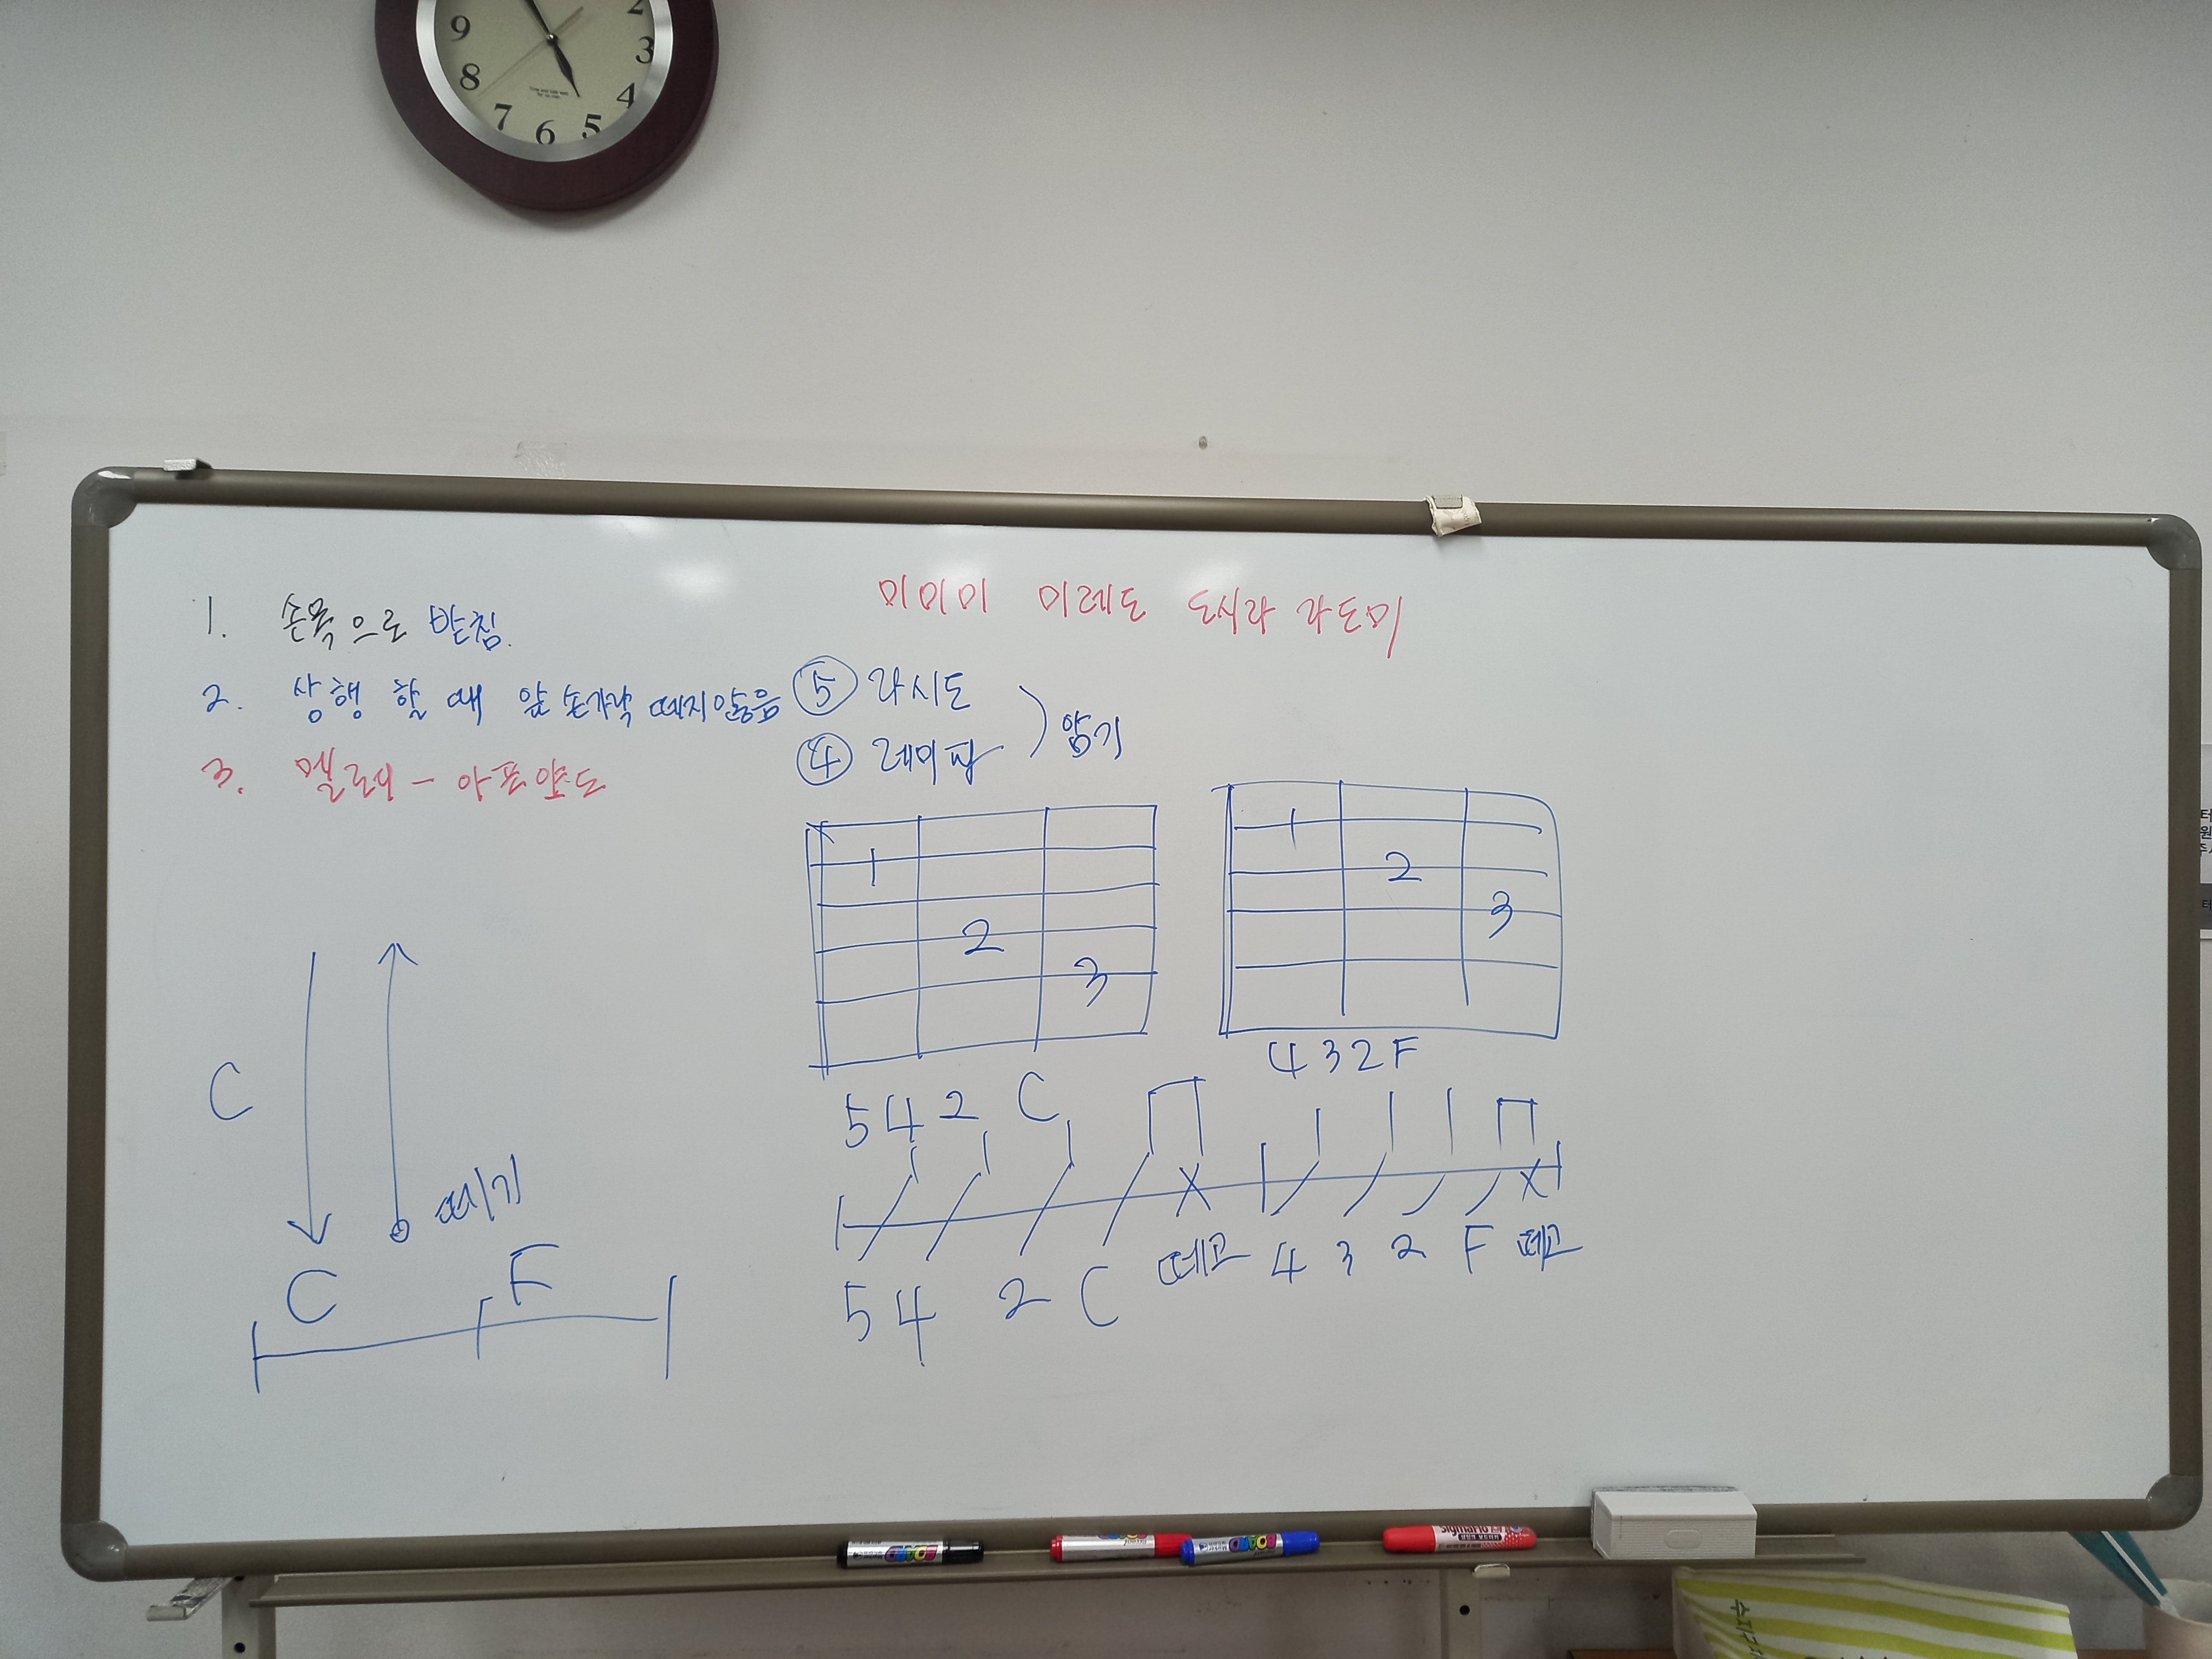 9 2
3
8 4
7 6 5
미미미 미레도 도시라 라도미
1. 손목으로 받침.
2. 상행 할 때 앞 손가락 떼지않음
⑤ 라시도
④ 레미파
암기
3. 멜로디 - 아포얀도
1
2
3
1
2
3
4 3 2 F
5 4 2 C
C
떼기
C F
떼고 4 3 2 F 떼고
5 4 2 C
BOARD
BOARD
SigmaFlo